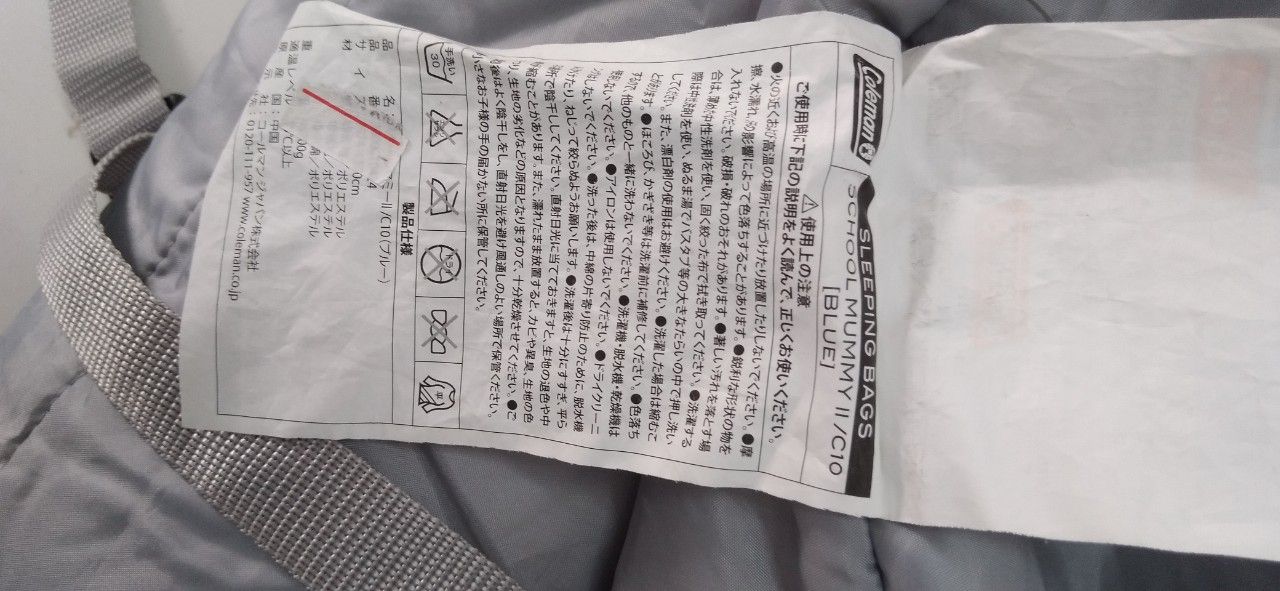 Coleman
SLEEPING BAGS
SCHOOL MUMMY II /C10
[BLUE]
⚠使用上の注意
ご使用時に下記の説明をよく読んで、正しくお使いください。
●火の近くおよび高温の場所に近づけたり放置したりしないでください。●摩
擦、水濡れ、の影響によって色落ちすることがあります。●鋭利な形状の物を
入れないでください。破損・破れのおそれがあります。●著しい汚れを落とす場
合は、薄めた中性洗剤を使い、固く絞った布で拭き取ってください。●洗濯する
際は中性洗剤を使い、ぬるま湯でバスタブ等の大きなたらいの中で押し洗い
してください。また、漂白剤の使用はお避けください。●洗濯した場合は縮むこ
とがあります。●ほころび、かぎざき等は洗濯前に補修してください。●色落ち
するので、他のものと一緒に洗わないでください。●洗濯機・脱水機・乾燥機は
使わないでください。●アイロンは使用しないでください。●ドライクリーニ
しないでください。●洗った後は、中綿の片寄り防止のために、脱水機
けたり、ねじって絞らぬようお願いします。●洗濯後は十分にすすぎ、平ら
態で陰干ししてください。直射日光に当てておきますと、生地の退色や中
縮むことがあります。また、濡れたまま放置すると、カビや異臭、生地の色
り、生地の劣化などの原因となりますので、十分乾燥させてください。●ご
後はよく陰干しをし、直射日光を避け風通しのよい場所で保管ください。
小さなお子様の手の届かない所に保管してください。
手洗い 30 ドライ 平
製品仕様
品 名 マミーII/C10(ブルー)
品 番 4
サイズ 0cm
材 ポリエステル
ポリエステル
ポリエステル
重 00g
適温レベル ℃以上
原産国:中国
社:コールマンジャパン株式会社
0120-111-957 www.coleman.co.jp